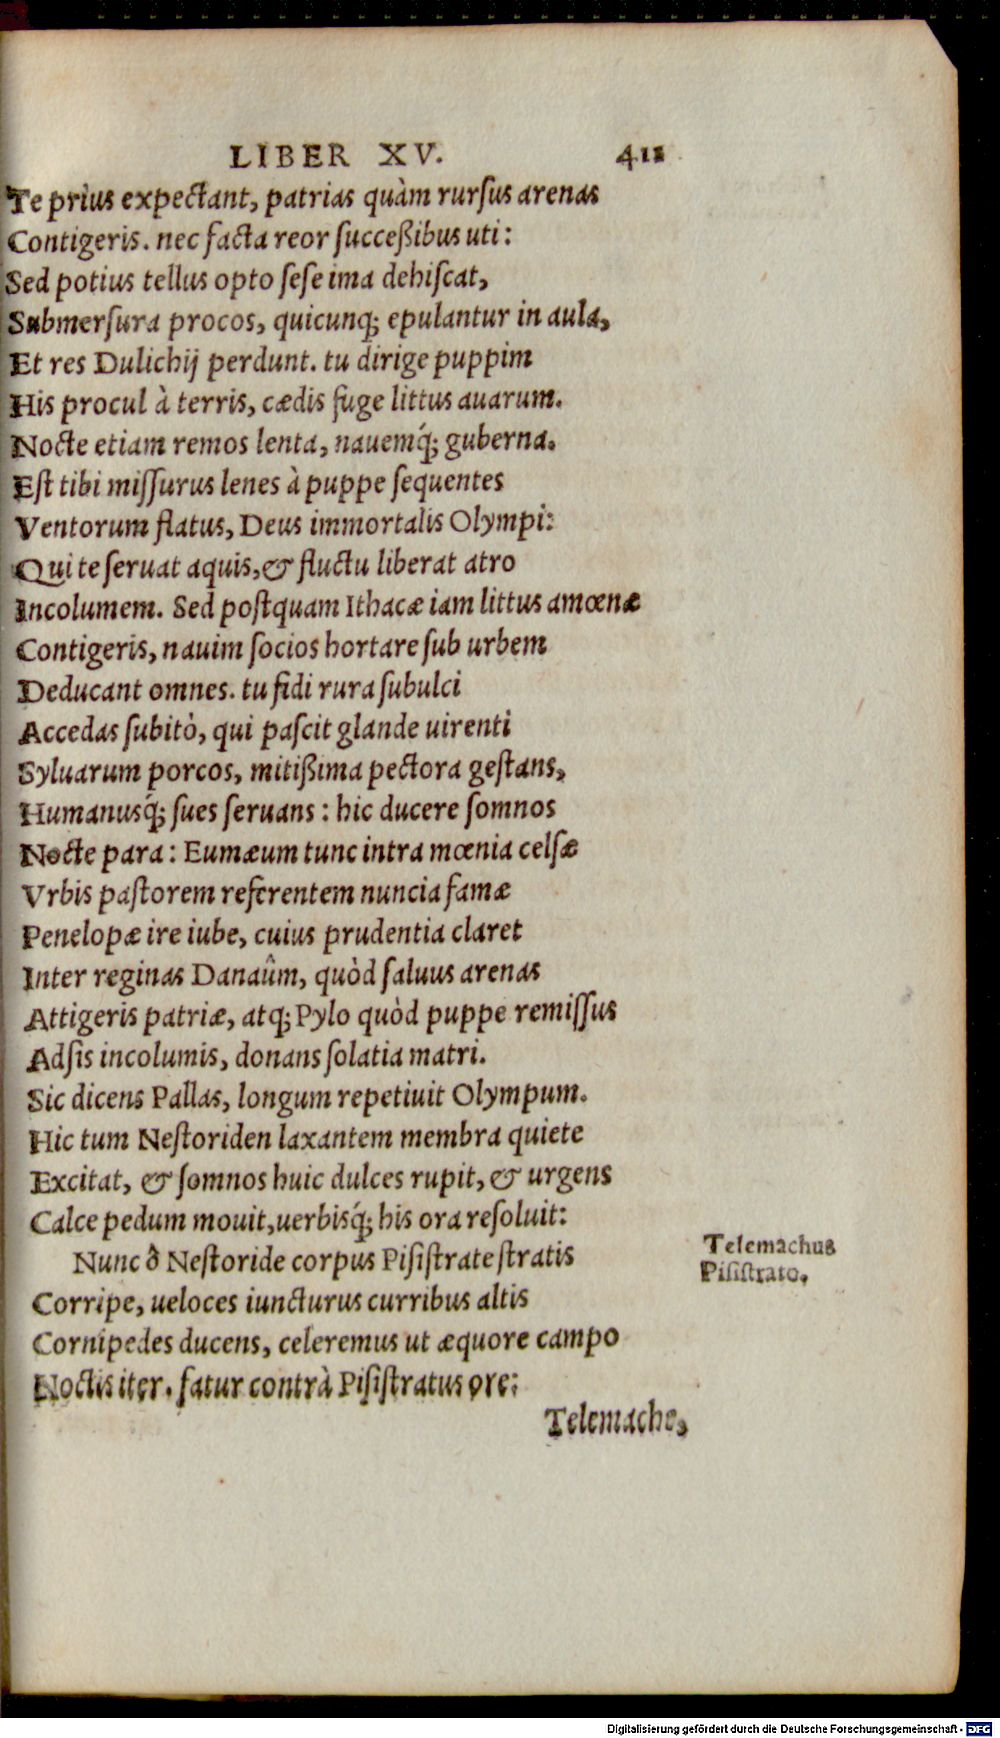 LIBER XV. 412
Te priùs expectant, patrias quàm rursus arenas
Contigeris. nec facta reor succeßibus uti:
Sed potius tellus opto sese ima dehiscat,
Submersura procos, quicunq; epulantur in aula,
Et res Dulichij perdunt. tu dirige puppim
His procul à terris, cædis fuge littus auarum.
Nocte etiam remos lenta, nauemq́; guberna.
Est tibi missurus lenes à puppe sequentes
Ventorum flatus, Deus immortalis Olympi:
Qui te seruat aquis, & fluctu liberat atro
Incolumem. Sed postquam Ithacæ iam littus amœnæ
Contigeris, nauim socios hortare sub urbem
Deducant omnes. tu fidi rura subulci
Accedas subitò, qui pascit glande uirenti
Syluarum porcos, mitißima pectora gestans,
Humanusq́; sues seruans: hic ducere somnos
Nocte para: Eumæum tunc intra mœnia celsæ
Vrbis pastorem referentem nuncia famæ
Penelopæ ire iube, cuius prudentia claret
Inter reginas Danaûm, quòd saluus arenas
Attigeris patriæ, atq; Pylo quòd puppe remissus
Adsis incolumis, donans solatia matri.
Sic dicens Pallas, longum repetiuit Olympum.
Hic tum Nestoriden laxantem membra quiete
Excitat, & somnos huic dulces rupit, & urgens
Calce pedum mouit, uerbisq́; his ora resoluit:
Nunc ô Nestoride corpus Pisistrate stratis
Telemachus
Pisistrato.
Corripe, ueloces iuncturus curribus altis
Cornipedes ducens, celeremus ut æquore campo
Noctis iter. fatur contrà Pisistratus ore:
Telemache,
Digitalisierung gefördert durch die Deutsche Forschungsgemeinschaft - DFG